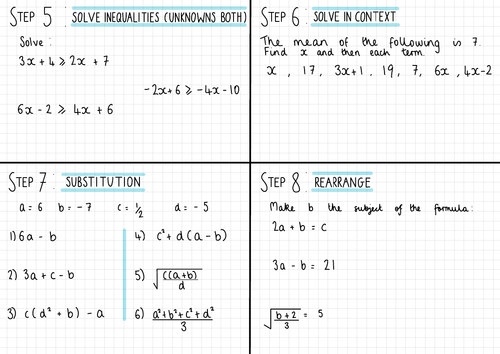 STEP 5 : SOLVE INEQUALITIES (UNKNOWNS BOTH)
Solve :
3x + 4 ⩾ 2x + 7
-2x+6 ⩾ -4x-10
6x - 2 ⩾ 4x + 6
STEP 6 : SOLVE IN CONTEXT
The mean of the following is 7.
Find x and then each term.
x , 17, 3x+1 , 19, 7, 6x, 4x-2
STEP 7 : SUBSTITUTION
a = 6 b = -7 c = 1/2 d = -5
1) 6a - b
2) 3a + c - b
3) c(d² + b) - a
4) c² + d(a - b)
5) √((c(a+b))/d)
6) (a²+b²+c²+d²)/3
STEP 8 : REARRANGE
Make b the subject of the formula:
2a + b = c
3a - b = 21
√((b+2)/3) = 5